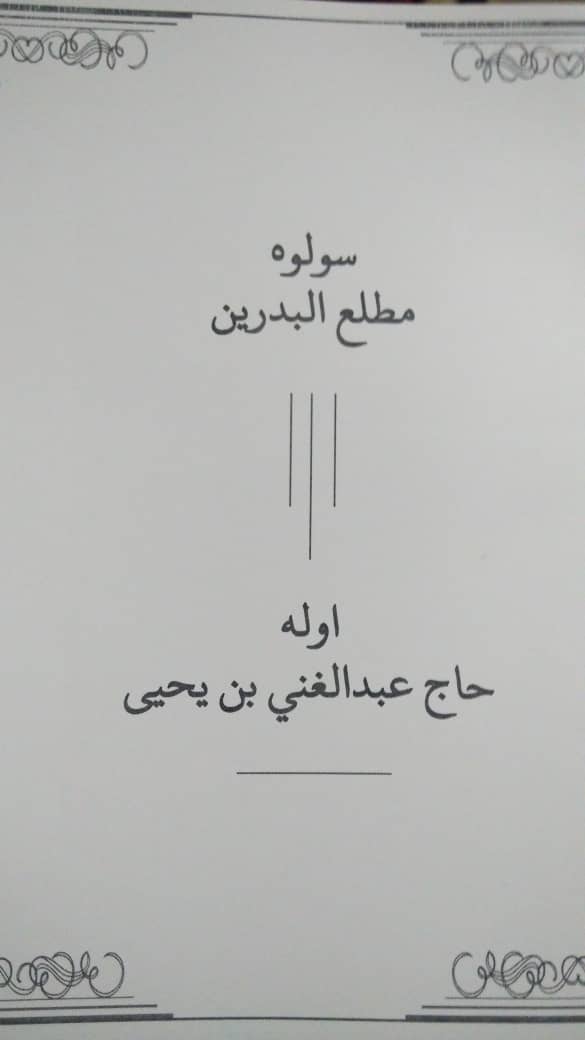 سولوه
مطلع البدرين
اوله
حاج عبدالغني بن يحيى